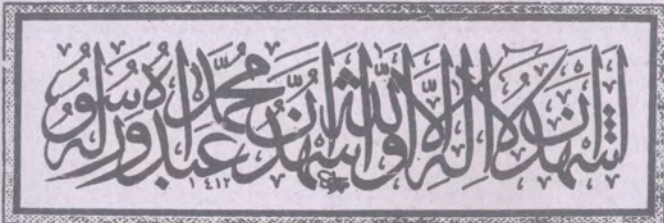 أشهد أن لا إله إلا الله وأشهد أن محمدا عبده ورسوله
١٤١٢